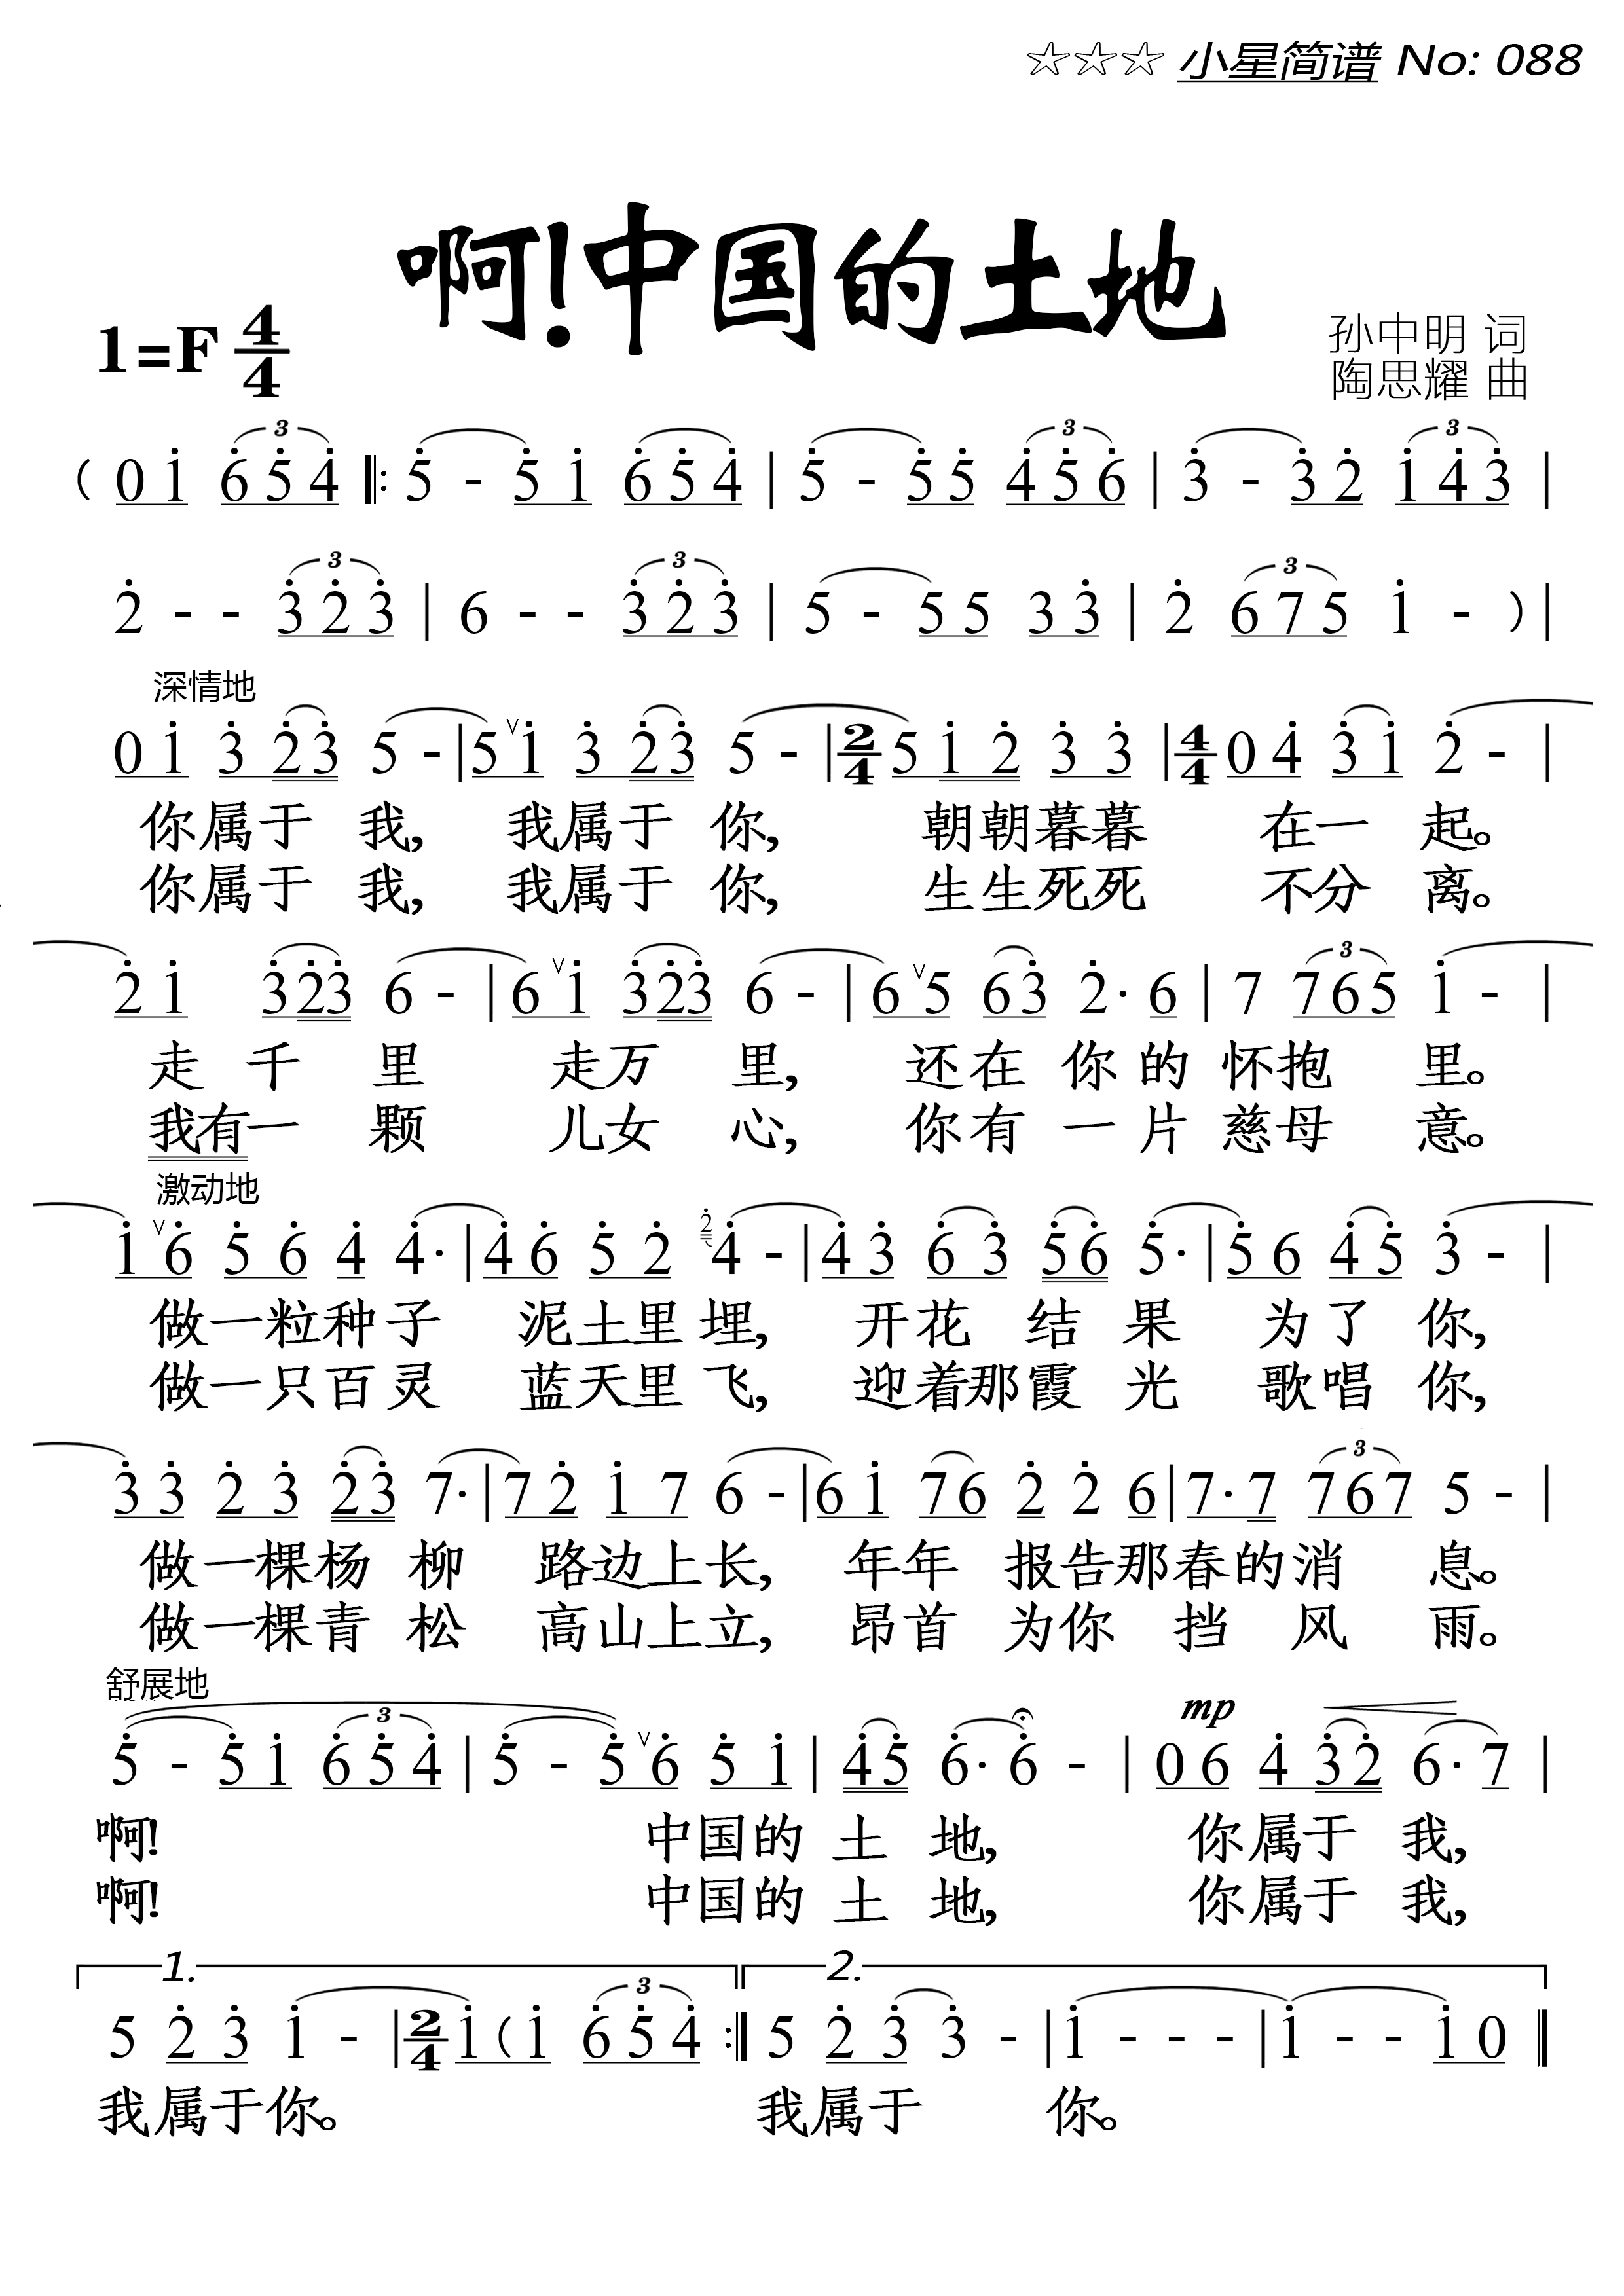 ☆☆☆ 小星简谱 No: 088
啊!中国的土地
1=F 4/4
孙中明 词
陶思耀 曲
( 0 i 6 5 4 ‖: 5 - 5 i 6 5 4 | 5 - 5 5 4 5 6 | 3 - 3 2 i 4 3 |
2 - - 3 2 3 | 6 - - 3 2 3 | 5 - 5 5 3 3 | 2 6 7 5 i - ) |
深情地
0 i 3 2 3 5 - | 5 ∨ i 3 2 3 5 - | 2/4 5 i 2 3 3 | 4/4 0 4 3 i 2 - |
你属于 我, 我属于 你, 朝朝暮暮 在一 起。
你属于 我, 我属于 你, 生生死死 不分 离。
2 i 3 2 3 6 - | 6 ∨ i 3 2 3 6 - | 6 ∨ 5 6 3 2 · 6 | 7 7 6 5 i - |
走 千 里 走万 里, 还在 你 的 怀抱 里。
我有一 颗 儿女 心, 你有 一 片 慈母 意。
激动地
i ∨ 6 5 6 4 4 · | 4 6 5 2 2 4 - | 4 3 6 3 5 6 5 · | 5 6 4 5 3 - |
做一粒种子 泥土里埋, 开花 结 果 为了 你,
做一只百灵 蓝天里飞, 迎着那霞 光 歌唱 你,
3 3 2 3 2 3 7 · | 7 2 i 7 6 - | 6 i 7 6 2 2 6 | 7 · 7 7 6 7 5 - |
做一棵杨 柳 路边上长, 年年 报告那春的消 息。
做一棵青 松 高山上立, 昂首 为你 挡 风 雨。
舒展地
mp
5 - 5 i 6 5 4 | 5 - 5 ∨ 6 5 i | 4 5 6 · 6 - | 0 6 4 3 2 6 · 7 |
啊! 中国的 土 地, 你属于 我,
啊! 中国的 土 地, 你属于 我,
1. 2.
5 2 3 i - | 2/4 i ( i 6 5 4 :‖ 5 2 3 3 - | i - - - | i - - i 0 ‖
我属于你。 我属于 你。